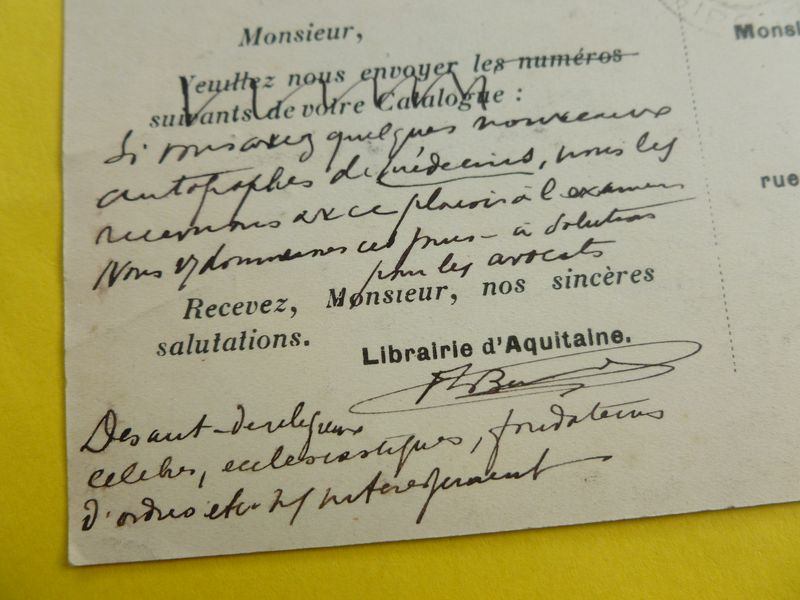 Monsieur,
Monsi
Veuillez nous envoyer les numéros
suivants de votre Catalogue :
Si vous avez quelques nouveaux
autographes de médecins, nous les
recevrons avec plaisir à l'examen
rue
Nous vs donnerons ces jours-ci solution
pour les avocats
Recevez, Monsieur, nos sincères
salutations.
Librairie d'Aquitaine.
Des aut. de religieux
célèbres, ecclésiastiques, fondateurs
d'ordres etc. ns intéresseraient